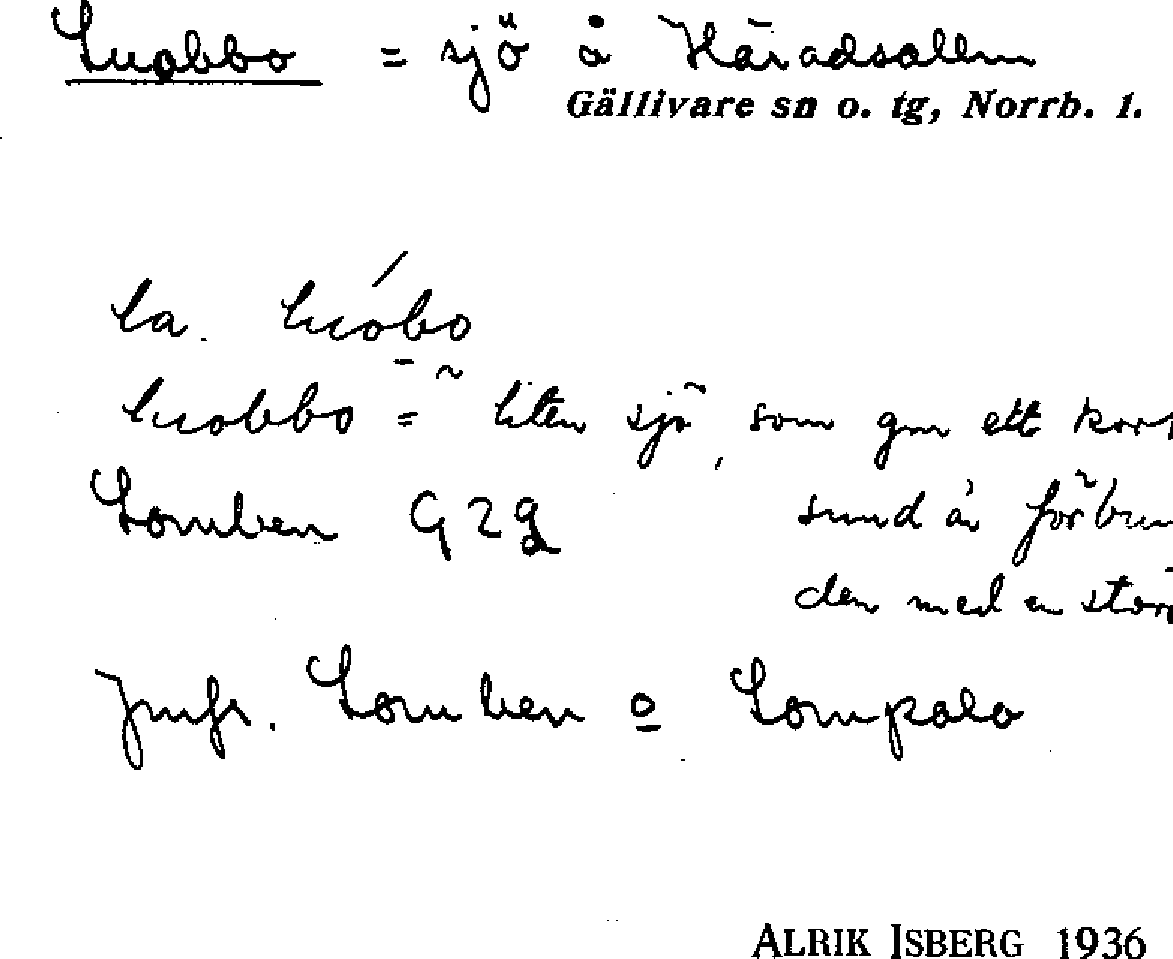 Luobbo = sjö å Häradsallm
Gällivare sn o. tg, Norrb. l.
la. luóbo
luobbo = liten sjö, som gm ett kort
Lomben G2g sund är förbun
den med en stör
Jmfr. Lomben o Lompolo
ALRIK ISBERG 1936